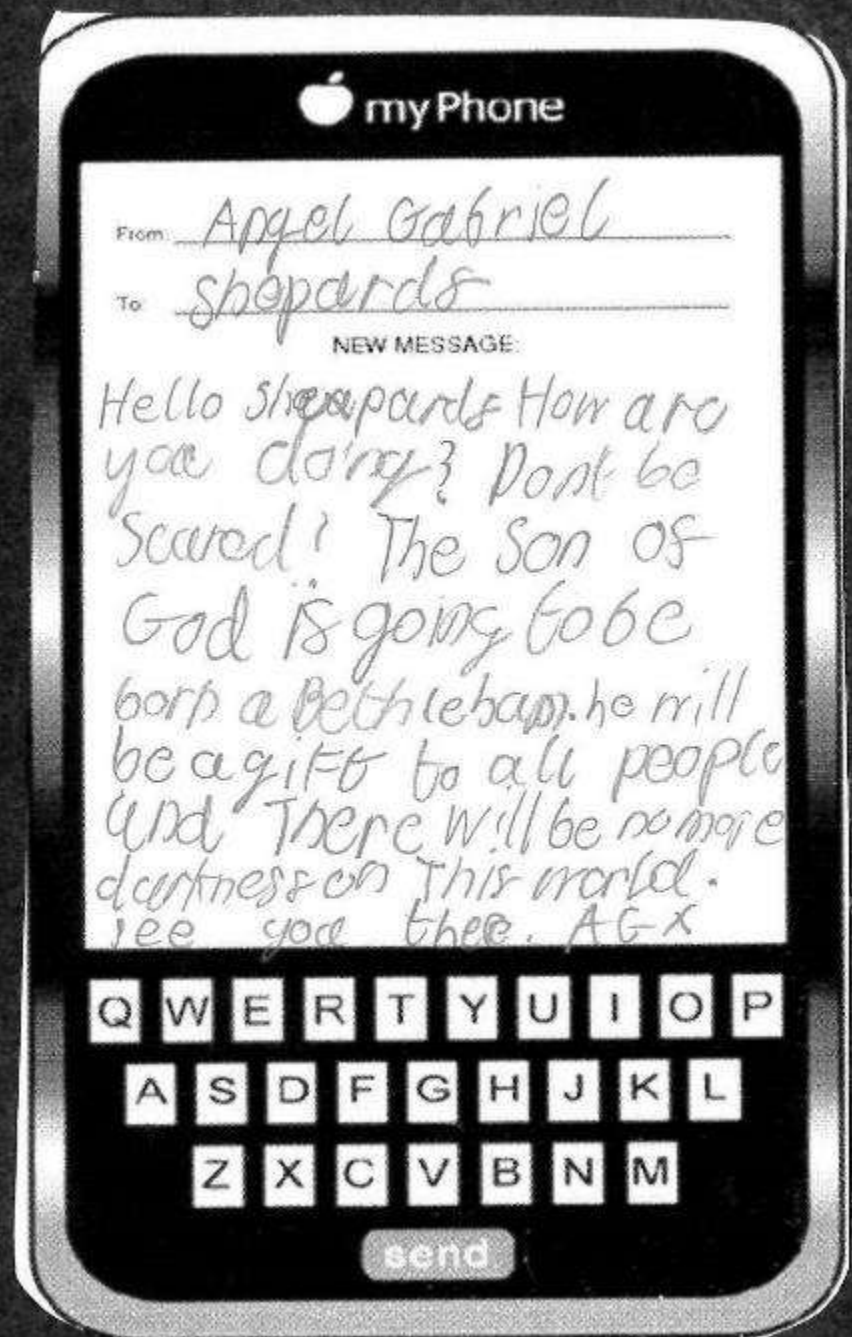 myPhone
From: Angel Gabriel
To: Shepards
NEW MESSAGE:
Hello Sheapards How are
you doing? Dont be
Scared! The Son of
God is going to be
born a Bethleham. he will
be a gift to all people
and There will be no more
darkness on This world.
see you thee. AG x
Q W E R T Y U I O P
A S D F G H J K L
Z X C V B N M
send